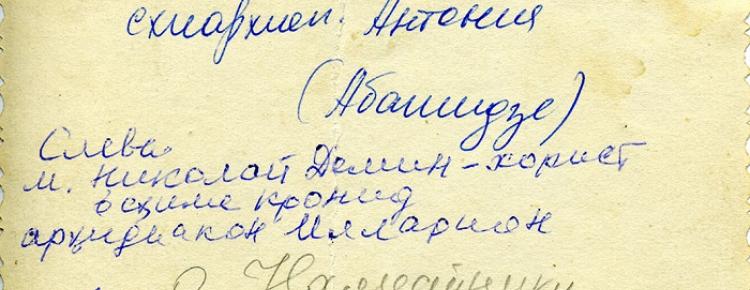 схиархиеп. Антония
(Абашидзе)
Слева
м. Николай Демин - хорист
в схиме кронид
архидиакон Илларион